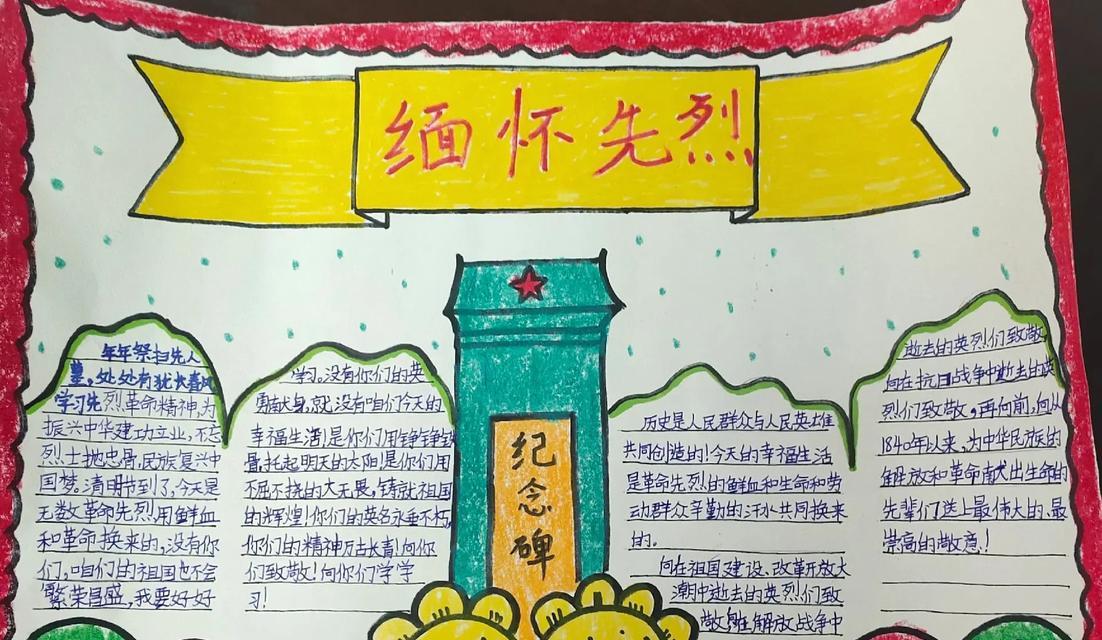 缅怀先烈
年年祭扫先人
墓,处处有犹长春风
学习先烈革命精神,为
振兴中华建功立业,不忘
烈士抛忠骨,民族复兴中
国梦。清明节到了,今天是
无数革命先烈用鲜血
和革命换来的,没有你
们,咱们的祖国也不会
繁荣昌盛,我要好好
学习。没有你们的英
勇献身,就没有咱们今天的
幸福生活!是你们用铮铮
骨,托起明天的太阳!是你们用
不屈不挠的大无畏,铸就祖国
的辉煌!你们的英名永垂不朽,
你们的精神万古长青!向你
们致敬!向你们学学
习!
纪念碑
历史是人民群众与人民英雄
共同创造的!今天的幸福生活
是革命先烈的鲜血和生命和劳
动群众辛勤的汗水共同换来
的。
向在祖国建设、改革开放大
潮中逝去的英烈们致
敬,解放战争中
逝去的英烈们致敬
向在抗日战争中逝去的英
烈们致敬,再向前,向从
1840年以来,为中华民族的
解放和革命献出生命的
先辈们送上最伟大的、最
崇高的敬意!